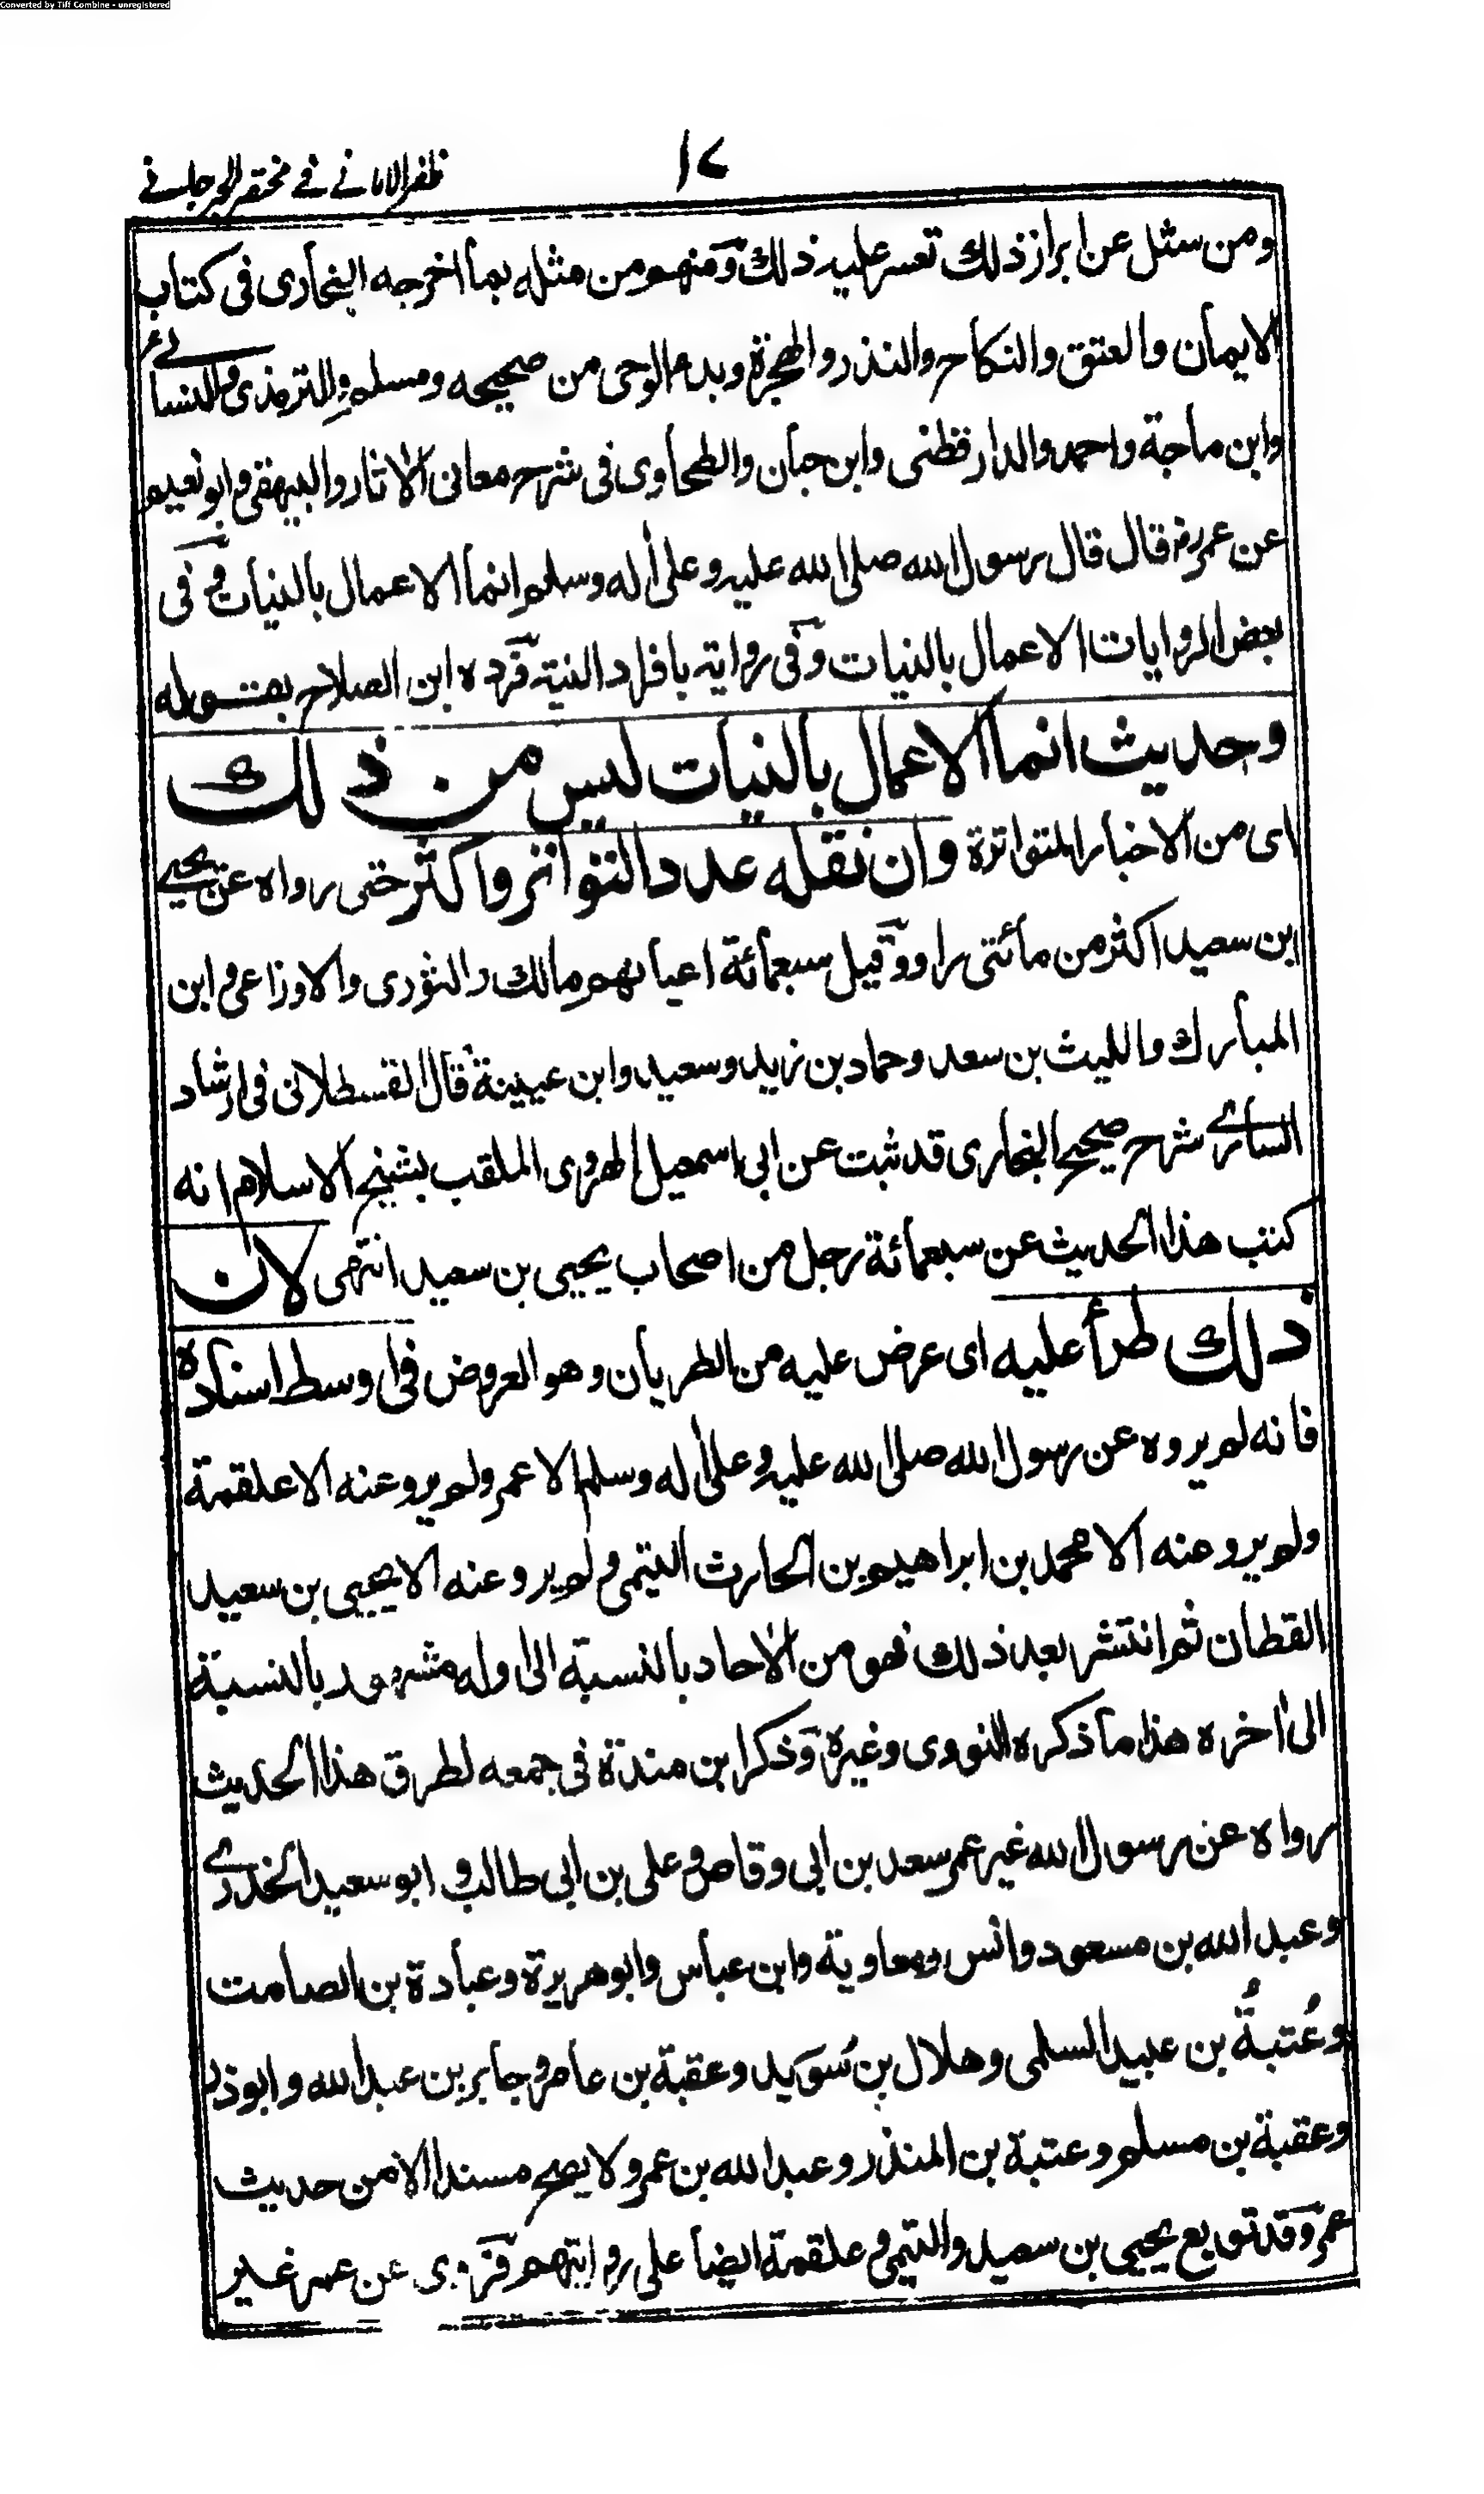 Converted by Tiff Combine - unregistered
ظفر الامانے فے مختصر الجرجانے
١٧
ومن سئل عن ابراز ذلك تعسر عليه ذلك ومنهم من مثله بما اخرجه البخاری فی كتاب
الايمان والعتق والنكاح والنذر والهجرة وبدء الوحی من صحيحه ومسلم والترمذی والنسائے
وابن ماجة واحمد والدارقطنی وابن حبان والطحاوی فی شرح معانی الاٰثار والبيهقی وابو نعيم
عن عمر رض قال قال رسول الله صلی الله عليه وعلیٰ اٰله وسلم انما الاعمال بالنيات وفی
بعض الروايات الاعمال بالنيات وفی رواية بافراد النية فرده ابن الصلاح بقوله
وحديث انما الاعمال بالنيات ليس من ذلك
ای من الاخبار المتواترة وان نقله عدد التواتر واكثر حتی رواه عن يحيے
ابن سعيد اكثر من مأئتی راو وقيل سبعمائة اعيانهم مالك والثوری والاوزاعی وابن
المبارك والليث بن سعد وحماد بن زيد وسعيد وابن عيينة قال القسطلانی فی ارشاد
الساری شرح صحيح البخاری قد ثبت عن ابی اسمعيل الهروی الملقب بشيخ الاسلام انه
كتب هذا الحديث عن سبعمائة رجل من اصحاب يحيی بن سعيد انتهی لان
ذلك طرأ عليه ای عرض عليه من الطريان وهو العروض فی اوسط اسناده
فانه لم يروه عن رسول الله صلی الله عليه وعلیٰ اٰله وسلم الا عمر ولم يرو عنه الا علقمة
ولم يرو عنه الا محمد بن ابراهيم بن الحارث التيمی ولم يرو عنه الا يحيی بن سعيد
القطان ثم انتشر بعد ذلك فهو من الاٰحاد بالنسبة الی اوله مشهور بالنسبة
الی اٰخره هذا ما ذكره النووی وغيره وذكر ابن مندة فی جمعه لطرق هذا الحديث
رواه عن رسول الله غير عمر سعد بن ابی وقاص وعلی بن ابی طالب وابو سعيد الخدرے
وعبد الله بن مسعود وانس ومعاوية وابن عباس وابو هريرة وعبادة بن الصامت
وعُتبةُ بن عبيد السلمی وهلال بن سُويد وعقبة بن عامر وجابر بن عبد الله وابو ذر
وعقبة بن مسلم وعتبة بن المنذر وعبد الله بن عمر ولا يصح مسندا الا من حديث
عمر وقد توبع يحيی بن سعيد والتيمی وعلقمة ايضا علی روايتهم فروی عن عمر غير